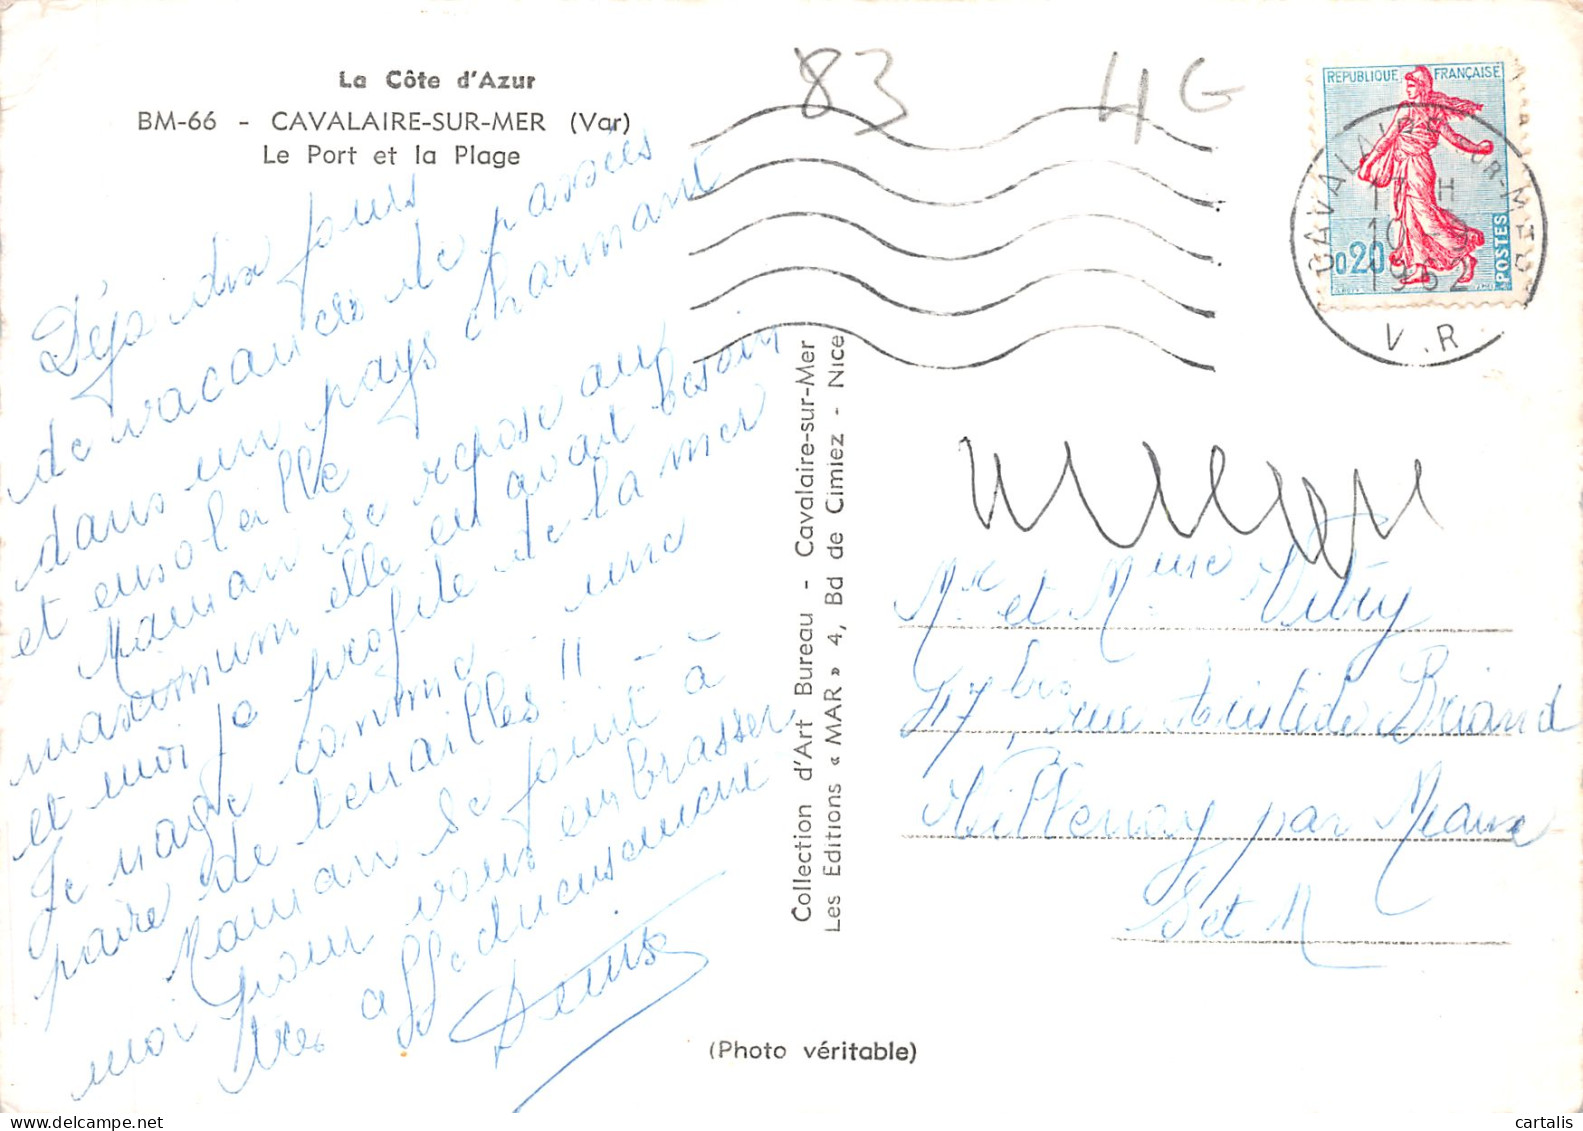 La Côte d'Azur
BM-66 - CAVALAIRE-SUR-MER (Var)
Le Port et la Plage
83
4G
REPUBLIQUE FRANÇAISE
0,20
POSTES
CAVALAIRE-SUR-MER
17 H
10 - 9
1962
VAR
Déjà dix jours
de vacances de passés
dans un pays charmant
et ensoleillé
Maman se repose au
maximum elle en avait besoin
et moi je profite de la mer
Je nage comme une
paire de tenailles !!
Maman se joint à
moi pour vous embrasser
très affectueusement
Denise
Collection d'Art Bureau - Cavalaire-sur-Mer
Les Editions « MAR » 4, Bd de Cimiez - Nice
Mr et Mme Vitry
47 bis, rue Aristide Briand
Villenoy par Meaux
S et M
(Photo véritable)
delcampe.net
cartalis